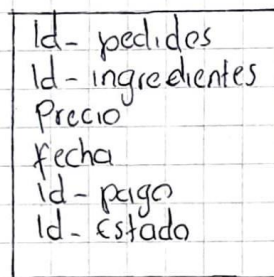 Id- pedidos
Id-ingredientes
Precio
Fecha
id-pago
Id-Estado